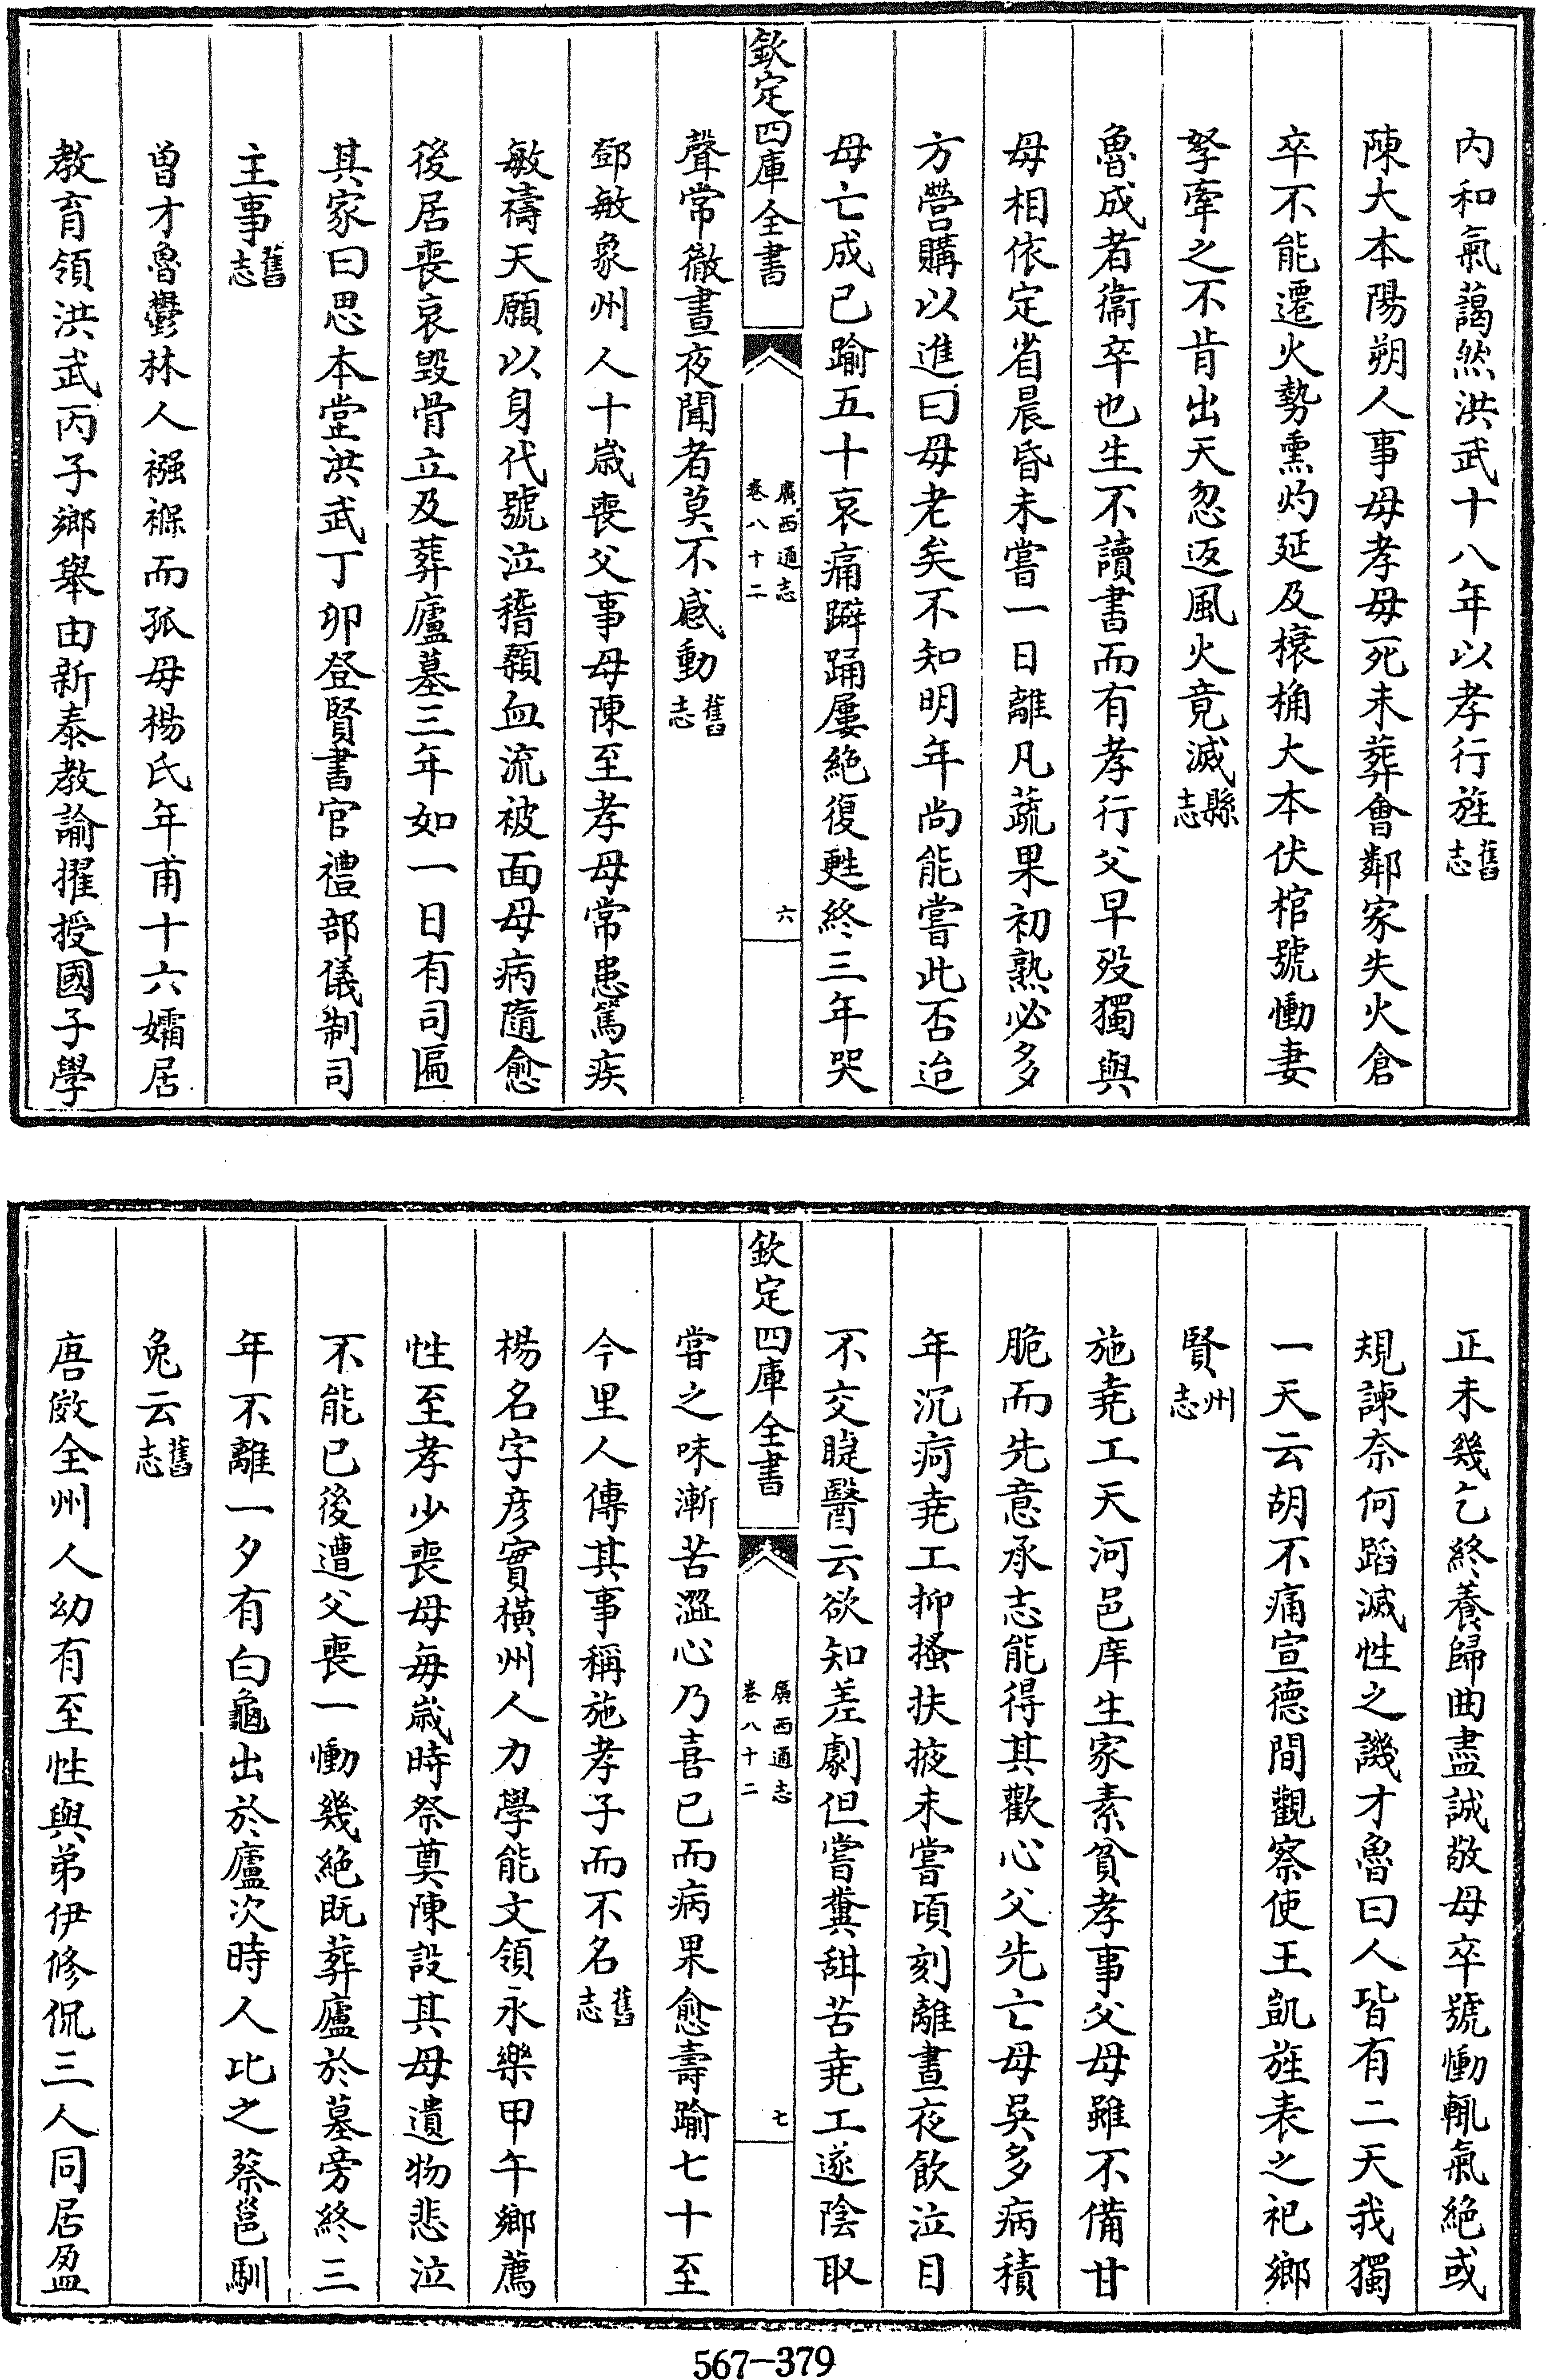 內和氣藹然洪武十八年以孝行旌舊志
陳大本陽朔人事母孝母死未葬會鄰家失火倉
卒不能遷火勢熏灼延及榱桷大本伏棺號慟妻
孥牽之不肯出天忽返風火竟滅縣志
魯成者衞卒也生不讀書而有孝行父早歿獨與
母相依定省晨昏未嘗一日離凡蔬果初熟必多
方營購以進曰母老矣不知明年尚能嘗此否迨
母亡成已踰五十哀痛躃踊屢絶復甦終三年哭
欽定四庫全書 廣西通志 卷八十二 六
聲常徹晝夜聞者莫不感動舊志
鄧敏象州人十歲喪父事母陳至孝母常患篤疾
敏禱天願以身代號泣稽顙血流被面母病隨愈
後居喪哀毀骨立及葬廬墓三年如一日有司匾
其家曰思本堂洪武丁卯登賢書官禮部儀制司
主事舊志
曾才魯鬱林人襁褓而孤母楊氏年甫十六孀居
教育領洪武丙子鄉舉由新泰教諭擢授國子學
正未幾乞終養歸曲盡誠敬母卒號慟輒氣絶或
規諫奈何蹈滅性之譏才魯曰人皆有二天我獨
一天云胡不痛宣德間觀察使王凱旌表之祀鄉
賢州志
施堯工天河邑庠生家素貧孝事父母雖不備甘
脆而先意承志能得其歡心父先亡母吳多病積
年沉疴堯工抑搔扶掖未嘗頃刻離晝夜飲泣目
不交睫醫云欲知差劇但嘗糞甜苦堯工遂陰取
欽定四庫全書 廣西通志 卷八十二 七
嘗之味漸苦澀心乃喜已而病果愈壽踰七十至
今里人傳其事稱施孝子而不名舊志
楊名字彦實橫州人力學能文領永樂甲午鄉薦
性至孝少喪母每歲時祭奠陳設其母遺物悲泣
不能已後遭父喪一慟幾絶既葬廬於墓旁終三
年不離一夕有白龜出於廬次時人比之蔡邕馴
兔云舊志
唐儆全州人幼有至性與弟伊修侃三人同居盈
567-379